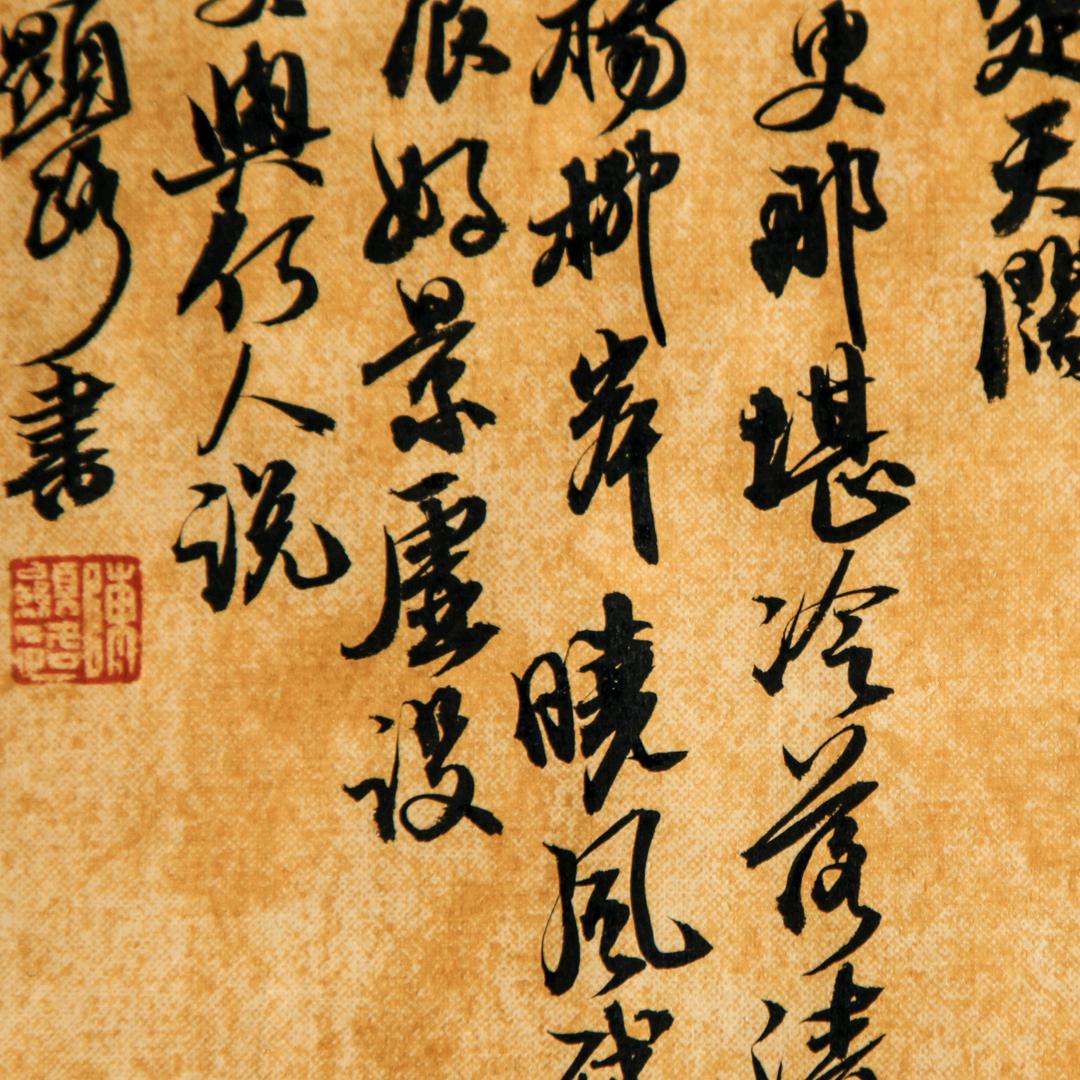 天闊
更那堪冷落清
楊柳岸曉風殘
良好景虛設
與何人說
顯 書